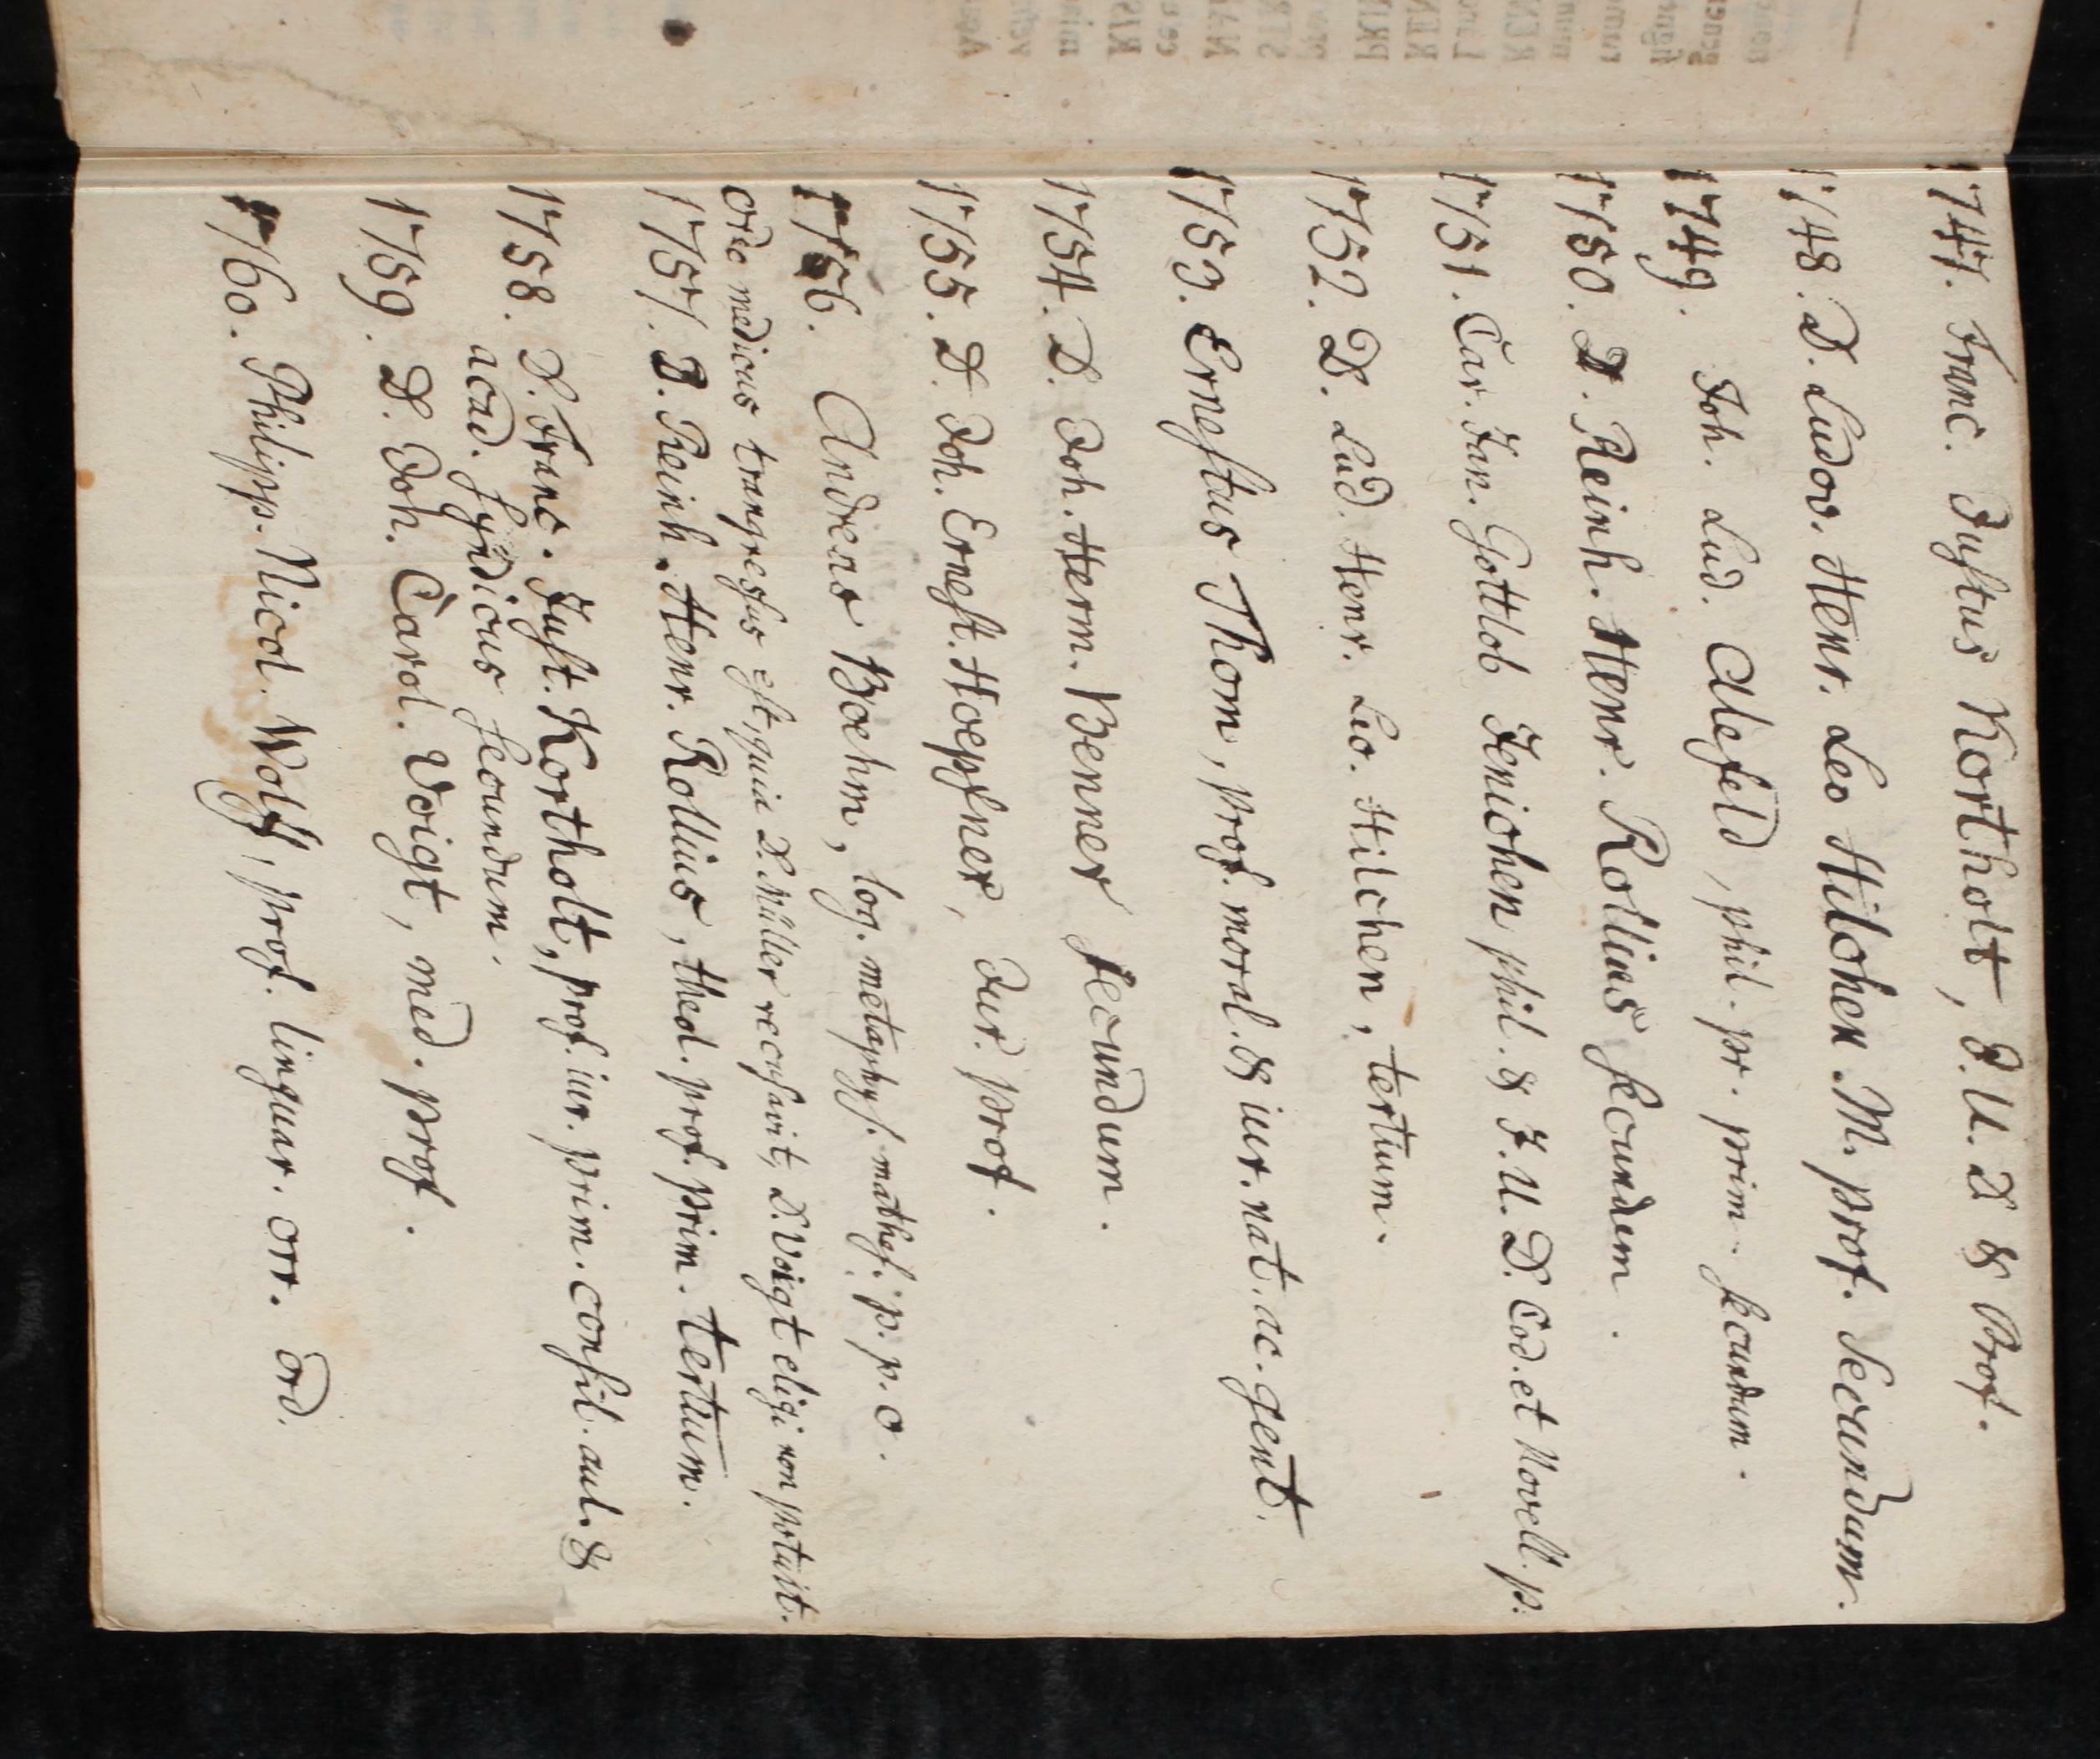 1747. Franc. Justus Kortholt, J. U. D & Prof.
1748. D. Ludov. Henr. Leo Hilchen M. prof. Secundum.
1749. Joh. Lud. Alefeld, phil. pr. prim. secundum.
1750. D. Reinh. Henr. Rollius secundum.
1751. Car. Fan. Gottlob Jenichen phil. & J. U. D. Cod. et Novell. p.
1752. D. Lud. Henr. Leo. Hilchen, tertum.
1753. Ernestus Thom, prof. moral. & iur. nat. ac. gent.
1754. D. Joh. Herm. Benner secundum.
1755. D. Joh. Ernest. Hoepfner, Jur. prof.
1756. Andreas Boehm, log. metaphys. mathes. p. p. o.
Ordo medicus transgressus est, quia D. Müller recusavit, D. Voigt eligi non potuit.
1757. D. Reinh. Henr. Rollius, theol. prof. prim. tertium.
1758. D. Franc. Just. Kortholt, prof. iur. prim. consil. aul. &
acad. syndicus secundum.
1759. D. Joh. Carol. Voigt, med. prof.
1760. Philipp. Nicol. Wolf, prof. linguar. orr. ord.